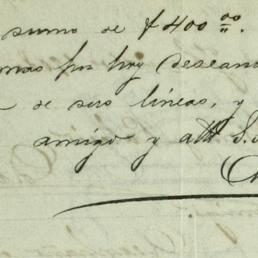 suma de $400 00/11.
mas por hoy desean
de sus lineas, y
amigo y attº S.